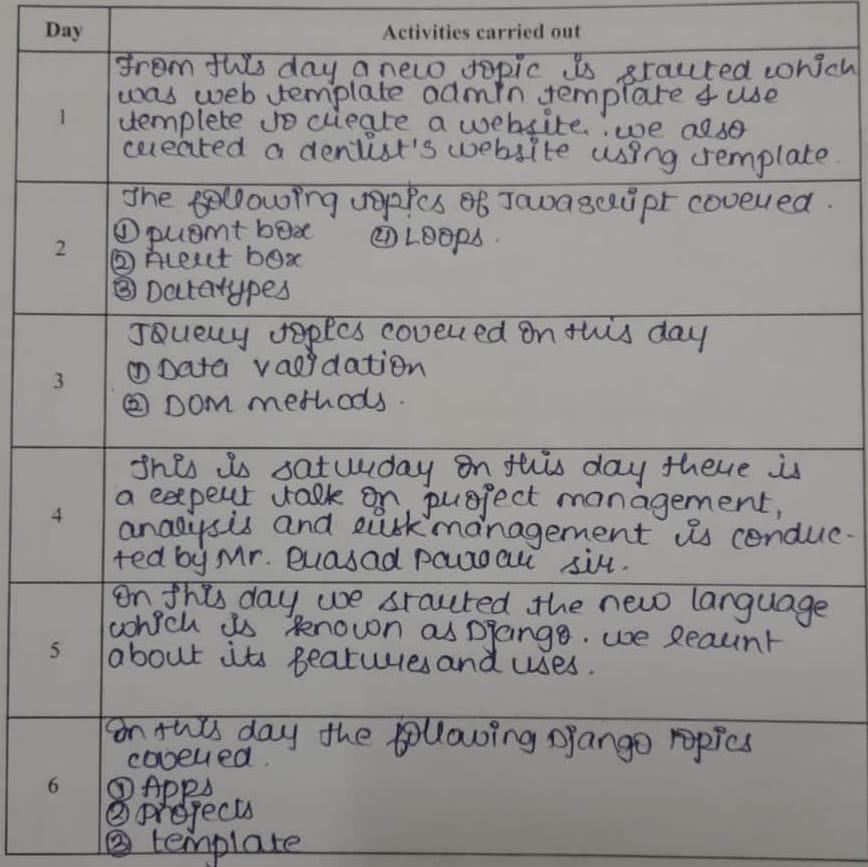 Day Activities carried out
1
From this day a new topic is started which
was web template admin template & use
templete to create a website. we also
created a dentist's website using template.
2
The following topics of Javascript covered.
① promt box ④ Loops.
② Alert box
③ Datatypes
3
JQuery topics covered on this day
① Data validation
② DOM methods.
4
This is saturday on this day there is
a expert talk on project management,
analysis and risk management is conduc-
ted by Mr. Prasad Pawar sir.
5
On this day we started the new language
which is known as Django. we learnt
about its features and uses.
6
On this day the following Django topics
covered.
① Apps
② Projects
③ template